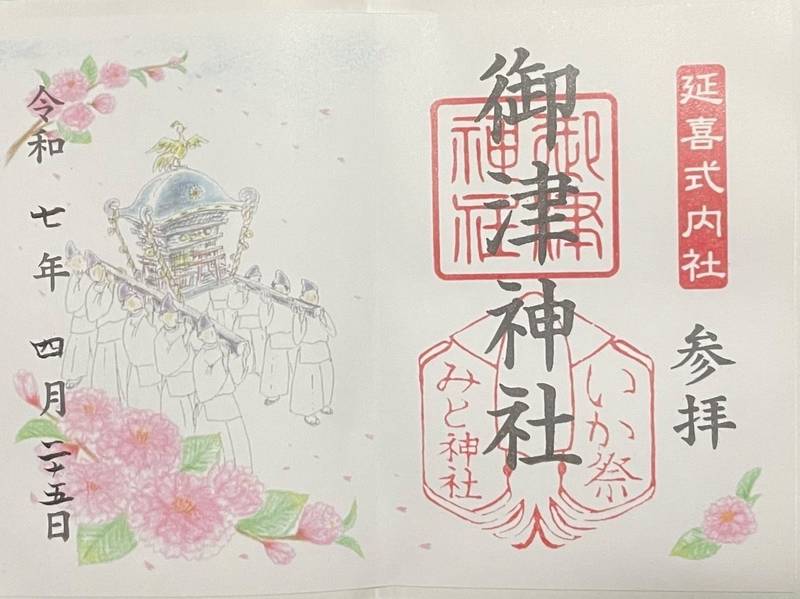 延喜式内社
参拝
御津神社
御津
神社
いか祭
みと神社
令和 七年 四月 二十五日